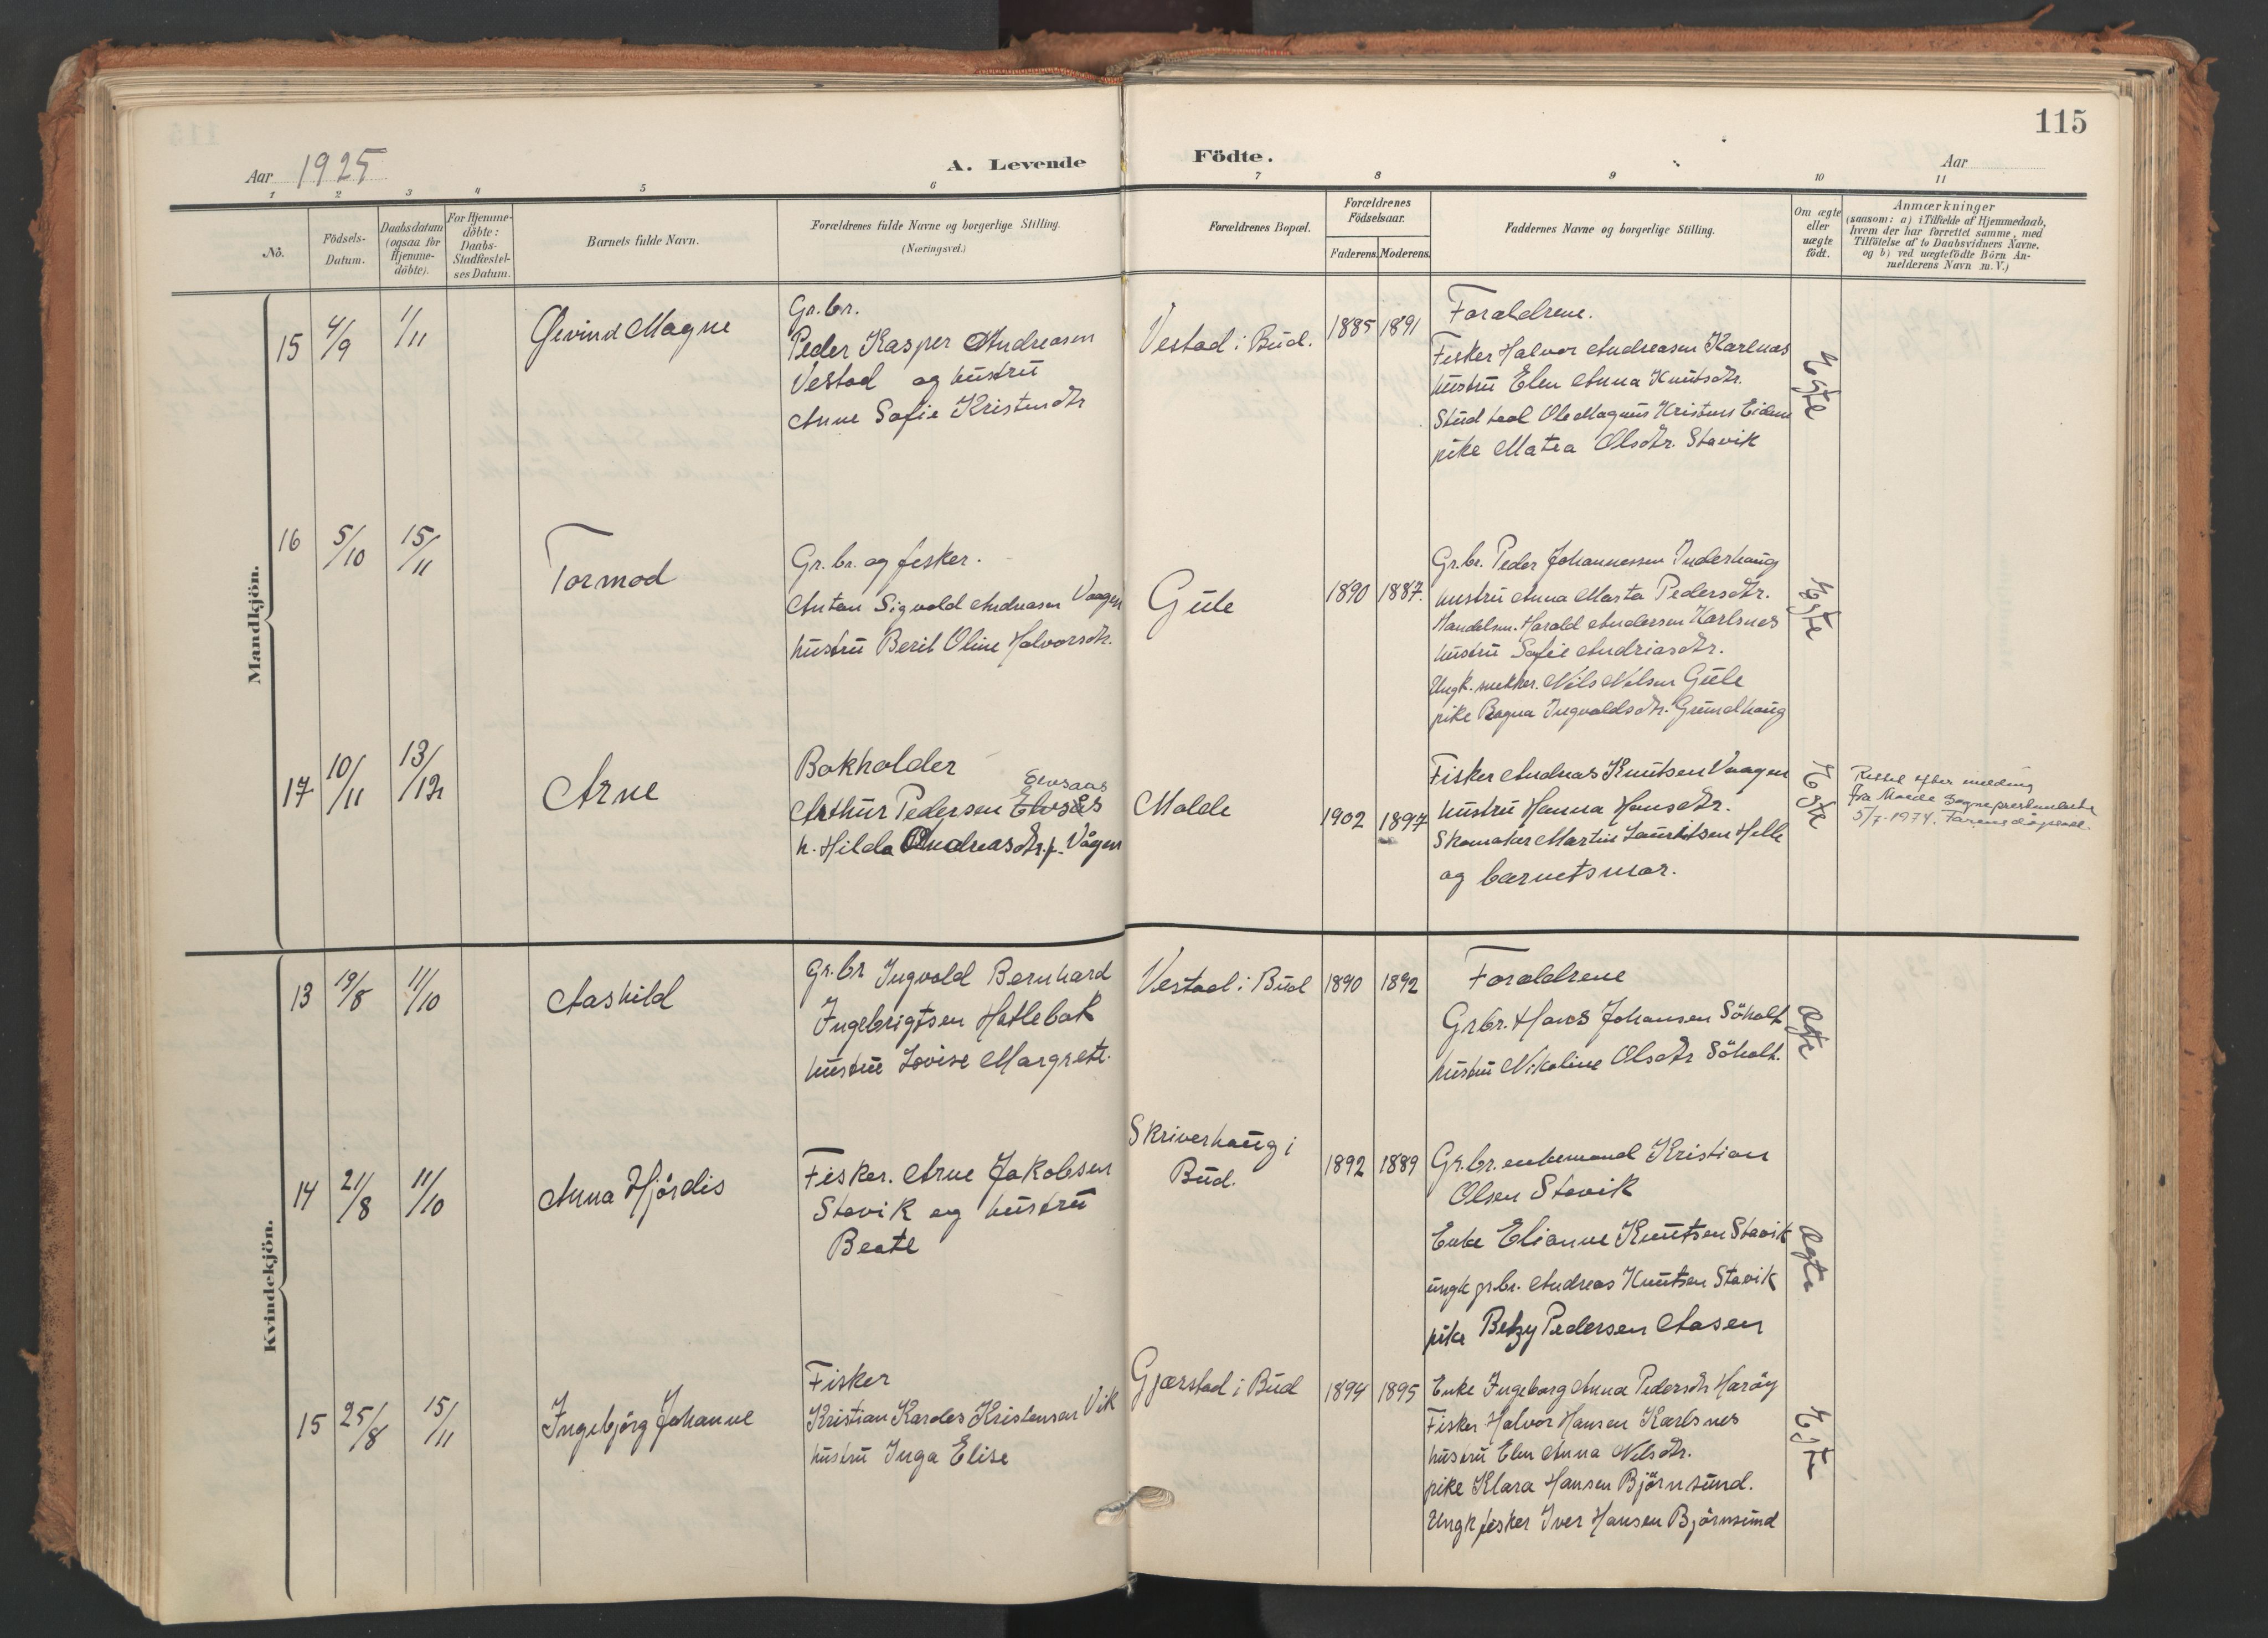 115
Aar 1925
A. Levende Födte.
Aar
1 2 3 4 5 6 7 8 9 10 11
No.
Födsels-
Datum.
Daabsdatum
(ogsaa for
Hjemme-
döbte).
For Hjemme-
döbte:
Daabs-
Stadfæstel-
ses Datum.
Barnets fulde Navn.
Forældrenes fulde Navne og borgerlige Stilling.
(Næringsvei.)
Forældrenes Bopæl.
Forældrenes
Födselsaar.
Faderens. Moderens.
Faddernes Navne og borgerlige Stilling.
Om ægte
eller
uægte
födt.
Anmærkninger
(saasom: a) i Tilfælde af Hjemmedaab,
hvem der har forrettet samme, med
Tilföielse af to Daabsvidners Navne.
og b) ved uægtefödte Börn An-
melderens Navn m. V.)
Mandkjön.
15 4/9 1/11
Øivind Magne
Gr.br.
Peder Kasper Andreasen
Vestad og hustru
Anne Sofie Kristensdtr
Vestad i Bud.
1885 1891
Foraldrene.
Fisker Halvor Andreasen Karlnæs
hustru Elen Anna Knutsdtr.
Stud Ole Magnus Kristens
pike Matea Olsdtr. Stavik
Egte
16 5/10 15/11
Tormod
Gr.br. og fisker.
Anton Sigvald Andreasen Vaagen
hustru Berit Oline Halvorsdtr.
Gule
1890 1887.
Gr.br. Peder Johannessen Inderhaug
hustru Anna Marta Pedersdtr.
Handelsm. Harald Andersen Karlsnes
hustru Sofie Andriasdtr.
Ungk. Nils Nelsen Gule
pike Ragna Ingvaldsdtr. Grundhaug
Egte
17 10/11 13/12
Arne
Bokholder
Elvsaas
Arthur Pedersen Elvsås
h. Hilda Andreasdtr. f. Vågen
Molde
1902 1897
Fisker Andreas Knutsen Vaagen
hustru Hanna Hansdtr.
Skomaker Martin Lauritsen Helle
og barnets mor.
Egte
Rettet efter melding
fra Molde sogneprestembete
5/7-1974.
Kvindekjön.
13 19/8 11/10
Aashild
Gr.br Ingvald Bernhard
Ingebrigtsen Hatlebak
hustru Lovise Margrete.
Vestad i Bud
1890 1892
Foraldrene
Gr.br. Hans Johansen Söholt
hustru Nikoline Olsdtr Söholt.
Egte
14 21/8 11/10
Anna Hjördis
Fisker. Arne Jakobsen
Stavik og hustru
Beate
Skriverhaug i
Bud.
1892 1889
Gr.br. enkemand Kristian
Olsen Stavik
Enke Elianne Knutsen Stavik
ungk gr.br. Andreas Knutsen Stavik
pike Betzy Pedersen Aasen
Egte
15 25/8 15/11
Ingebjörg Johanne
Fisker
Kristian Kardes Kristensen Vik
hustru Inga Elise
Gjærstad i Bud
1894 1895
Enke Ingeborg Anna Pedersdtr Haröy
Fisker Halvor Hansen Karlsnes
hustru Elen Anna Nelsdtr.
pike Klara Hansen Björnsund.
Ungk fisker Iver Hansen Björnsund
Egte